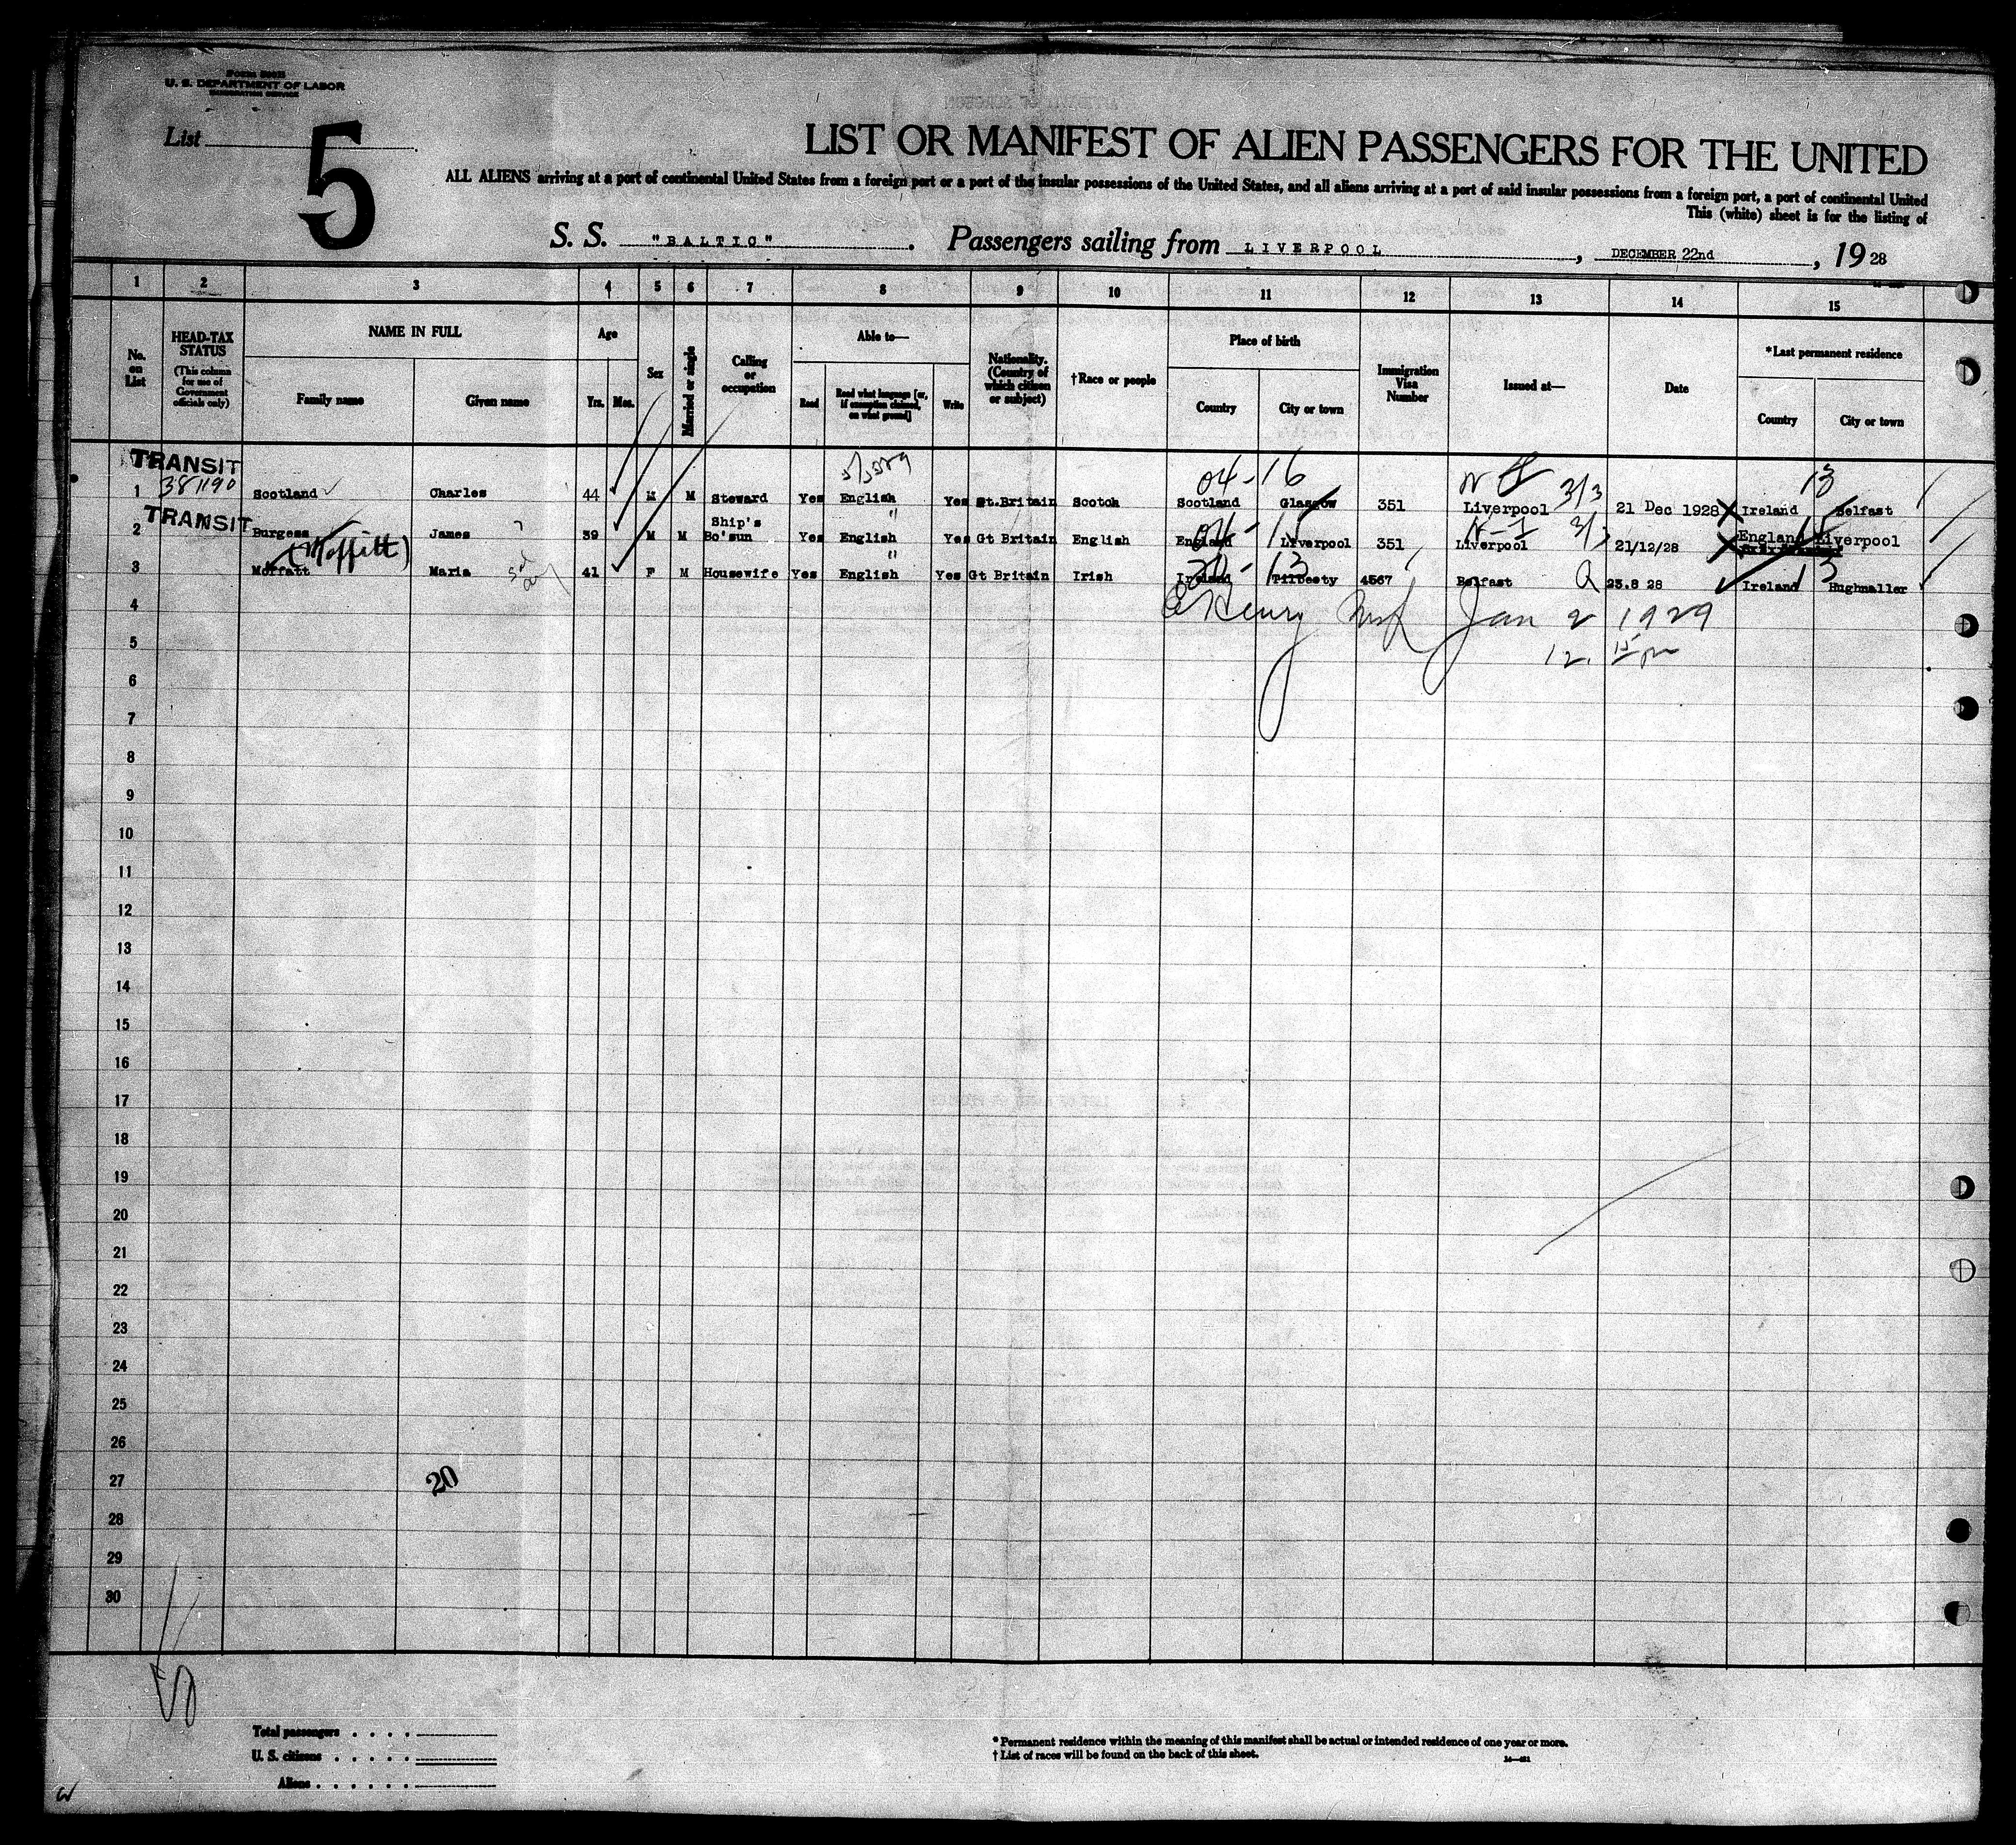 U. S. DEPARTMENT OF LABOR
List
5
LIST OR MANIFEST OF ALIEN PASSENGERS FOR THE UNITED
ALL ALIENS arriving at a port of continental United States from a foreign port or a port of the insular possessions of the United States, and all aliens arriving at a port of said insular possessions from a foreign port, a port of continental United
This (white) sheet is for the listing of
S. S. "BALTIC". Passengers sailing from LIVERPOOL, DECEMBER 22nd, 19 28
1 2 3 4 5 6 7 8 9 10 11 12 13 14 15
No. on List
HEAD-TAX STATUS (This column for use of Government officials only)
NAME IN FULL
Family name Given name
Age
Yrs. Mos.
Sex
Married or single
Calling or occupation
Able to—
Read Read what language [or, if exemption claimed, on what ground] Write
Nationality. (Country of which citizen or subject)
†Race or people
Place of birth
Country City or town
Immigration Visa Number
Issued at—
Date
*Last permanent residence
Country City or town
TRANSIT 04-16 13
381190 3/3
1 Scotland Charles 44 M M Steward Yes English Yes Gt.Britain Scotch Scotland Glasgow 351 Liverpool 21 Dec 1928 Ireland Belfast
TRANSIT
2 Burgess James 39 M M Ship's Bo'sun Yes English Yes Gt Britain English England Liverpool 351 Liverpool 21/12/28 England Liverpool
(Moffitt)
3 Moffatt Maria 41 F M Housewife Yes English Yes Gt Britain Irish Ireland 4567 Belfast 23.8 28 Ireland Hughnaller
4 Henry Jan 2 1929
5 12.15 pm
6
7
8
9
10
11
12
13
14
15
16
17
18
19
20
21
22
23
24
25
26
27 20
28
29
30
Total passengers . . . .
U. S. citizens . . . . .
Aliens . . . . . .
* Permanent residence within the meaning of this manifest shall be actual or intended residence of one year or more.
† List of races will be found on the back of this sheet.